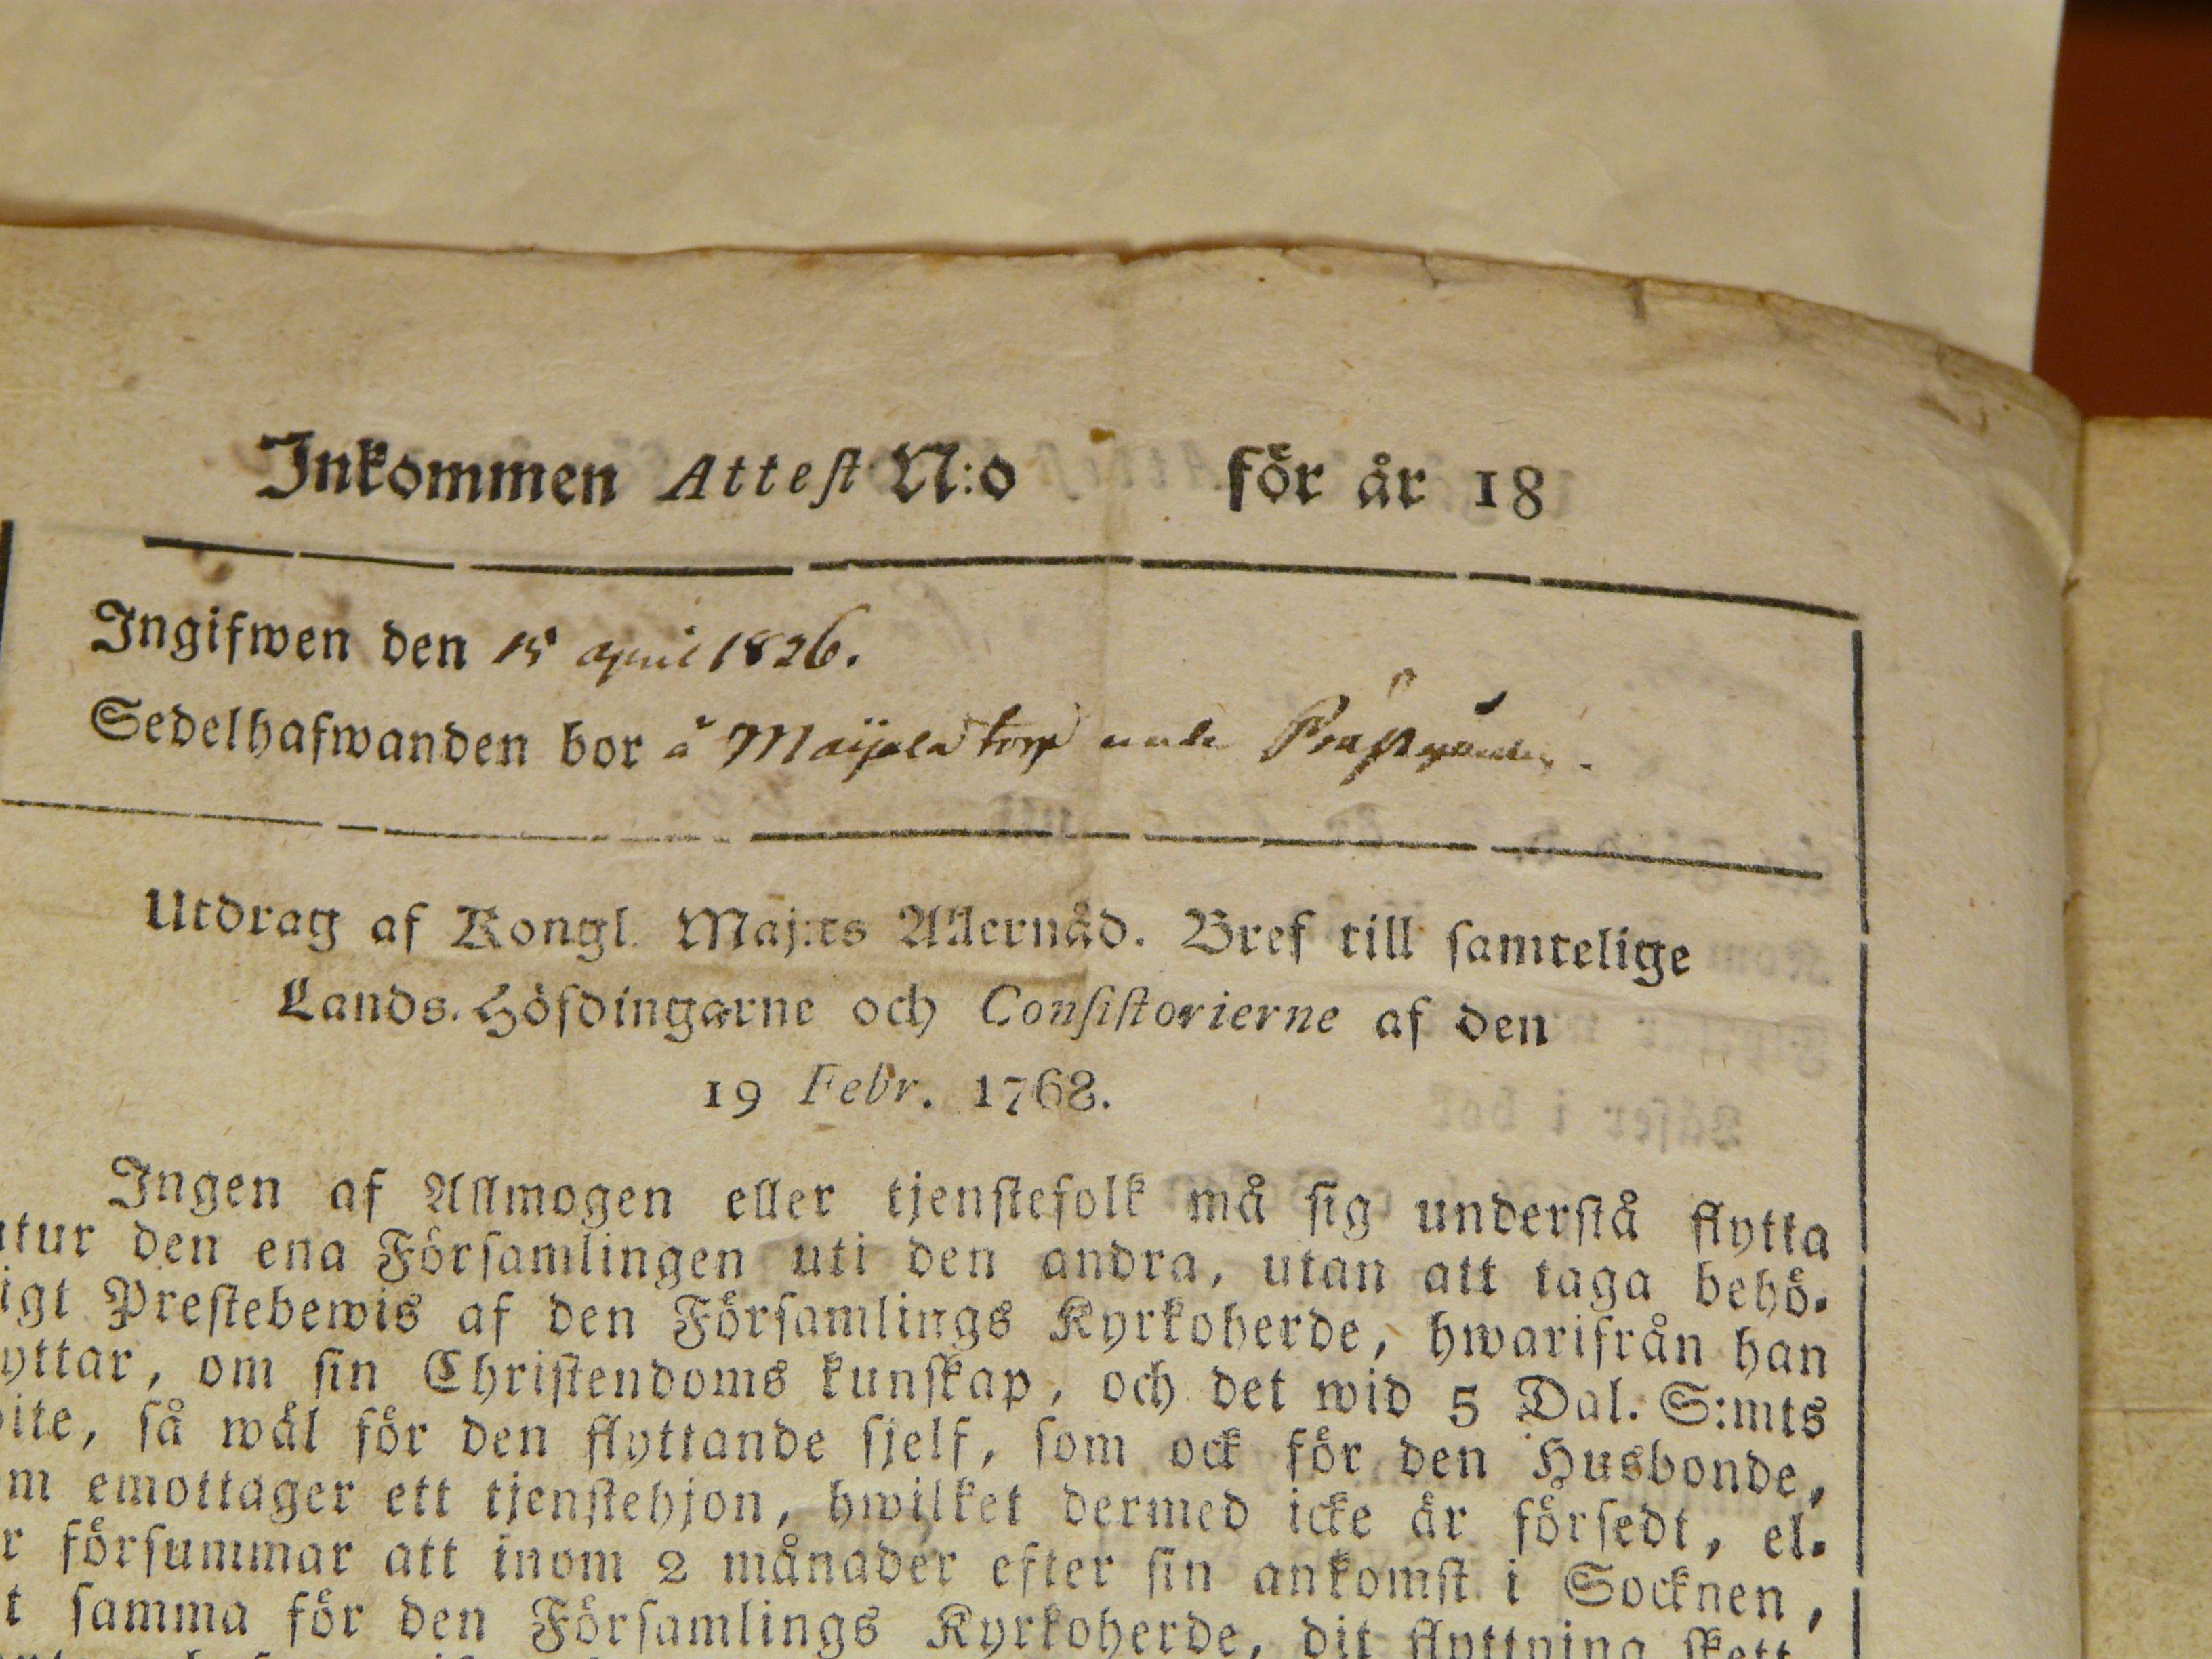 Inkommen Attest N:o för år 18
Ingifwen den 15 april 1826.
Sedelhafwanden bor å Maijala torp
Utdrag af Kongl. Maj:ts Allernåd. Bref till samtelige
Lands-Höfdingarne och Consistorierne af den
19 Febr. 1768.
Ingen af Allmogen eller tjenstefolk må sig understå flytta
utur den ena Församlingen uti den andra, utan att taga behö-
igt Prestebewis af den Församlings Kyrkoherde, hwarifrån han
yttar, om sin Christendoms kunskap, och det wid 5 Dal. S:mts
ite, så wäl för den flyttande sjelf, som ock för den Husbonde,
m emottager ett tjenstehjon, hwilket dermed icke är försedt, el-
r försummar att inom 2 månader efter sin ankomst i Socknen,
t samma för den Församlings Kyrkoherde, dit flyttning skett